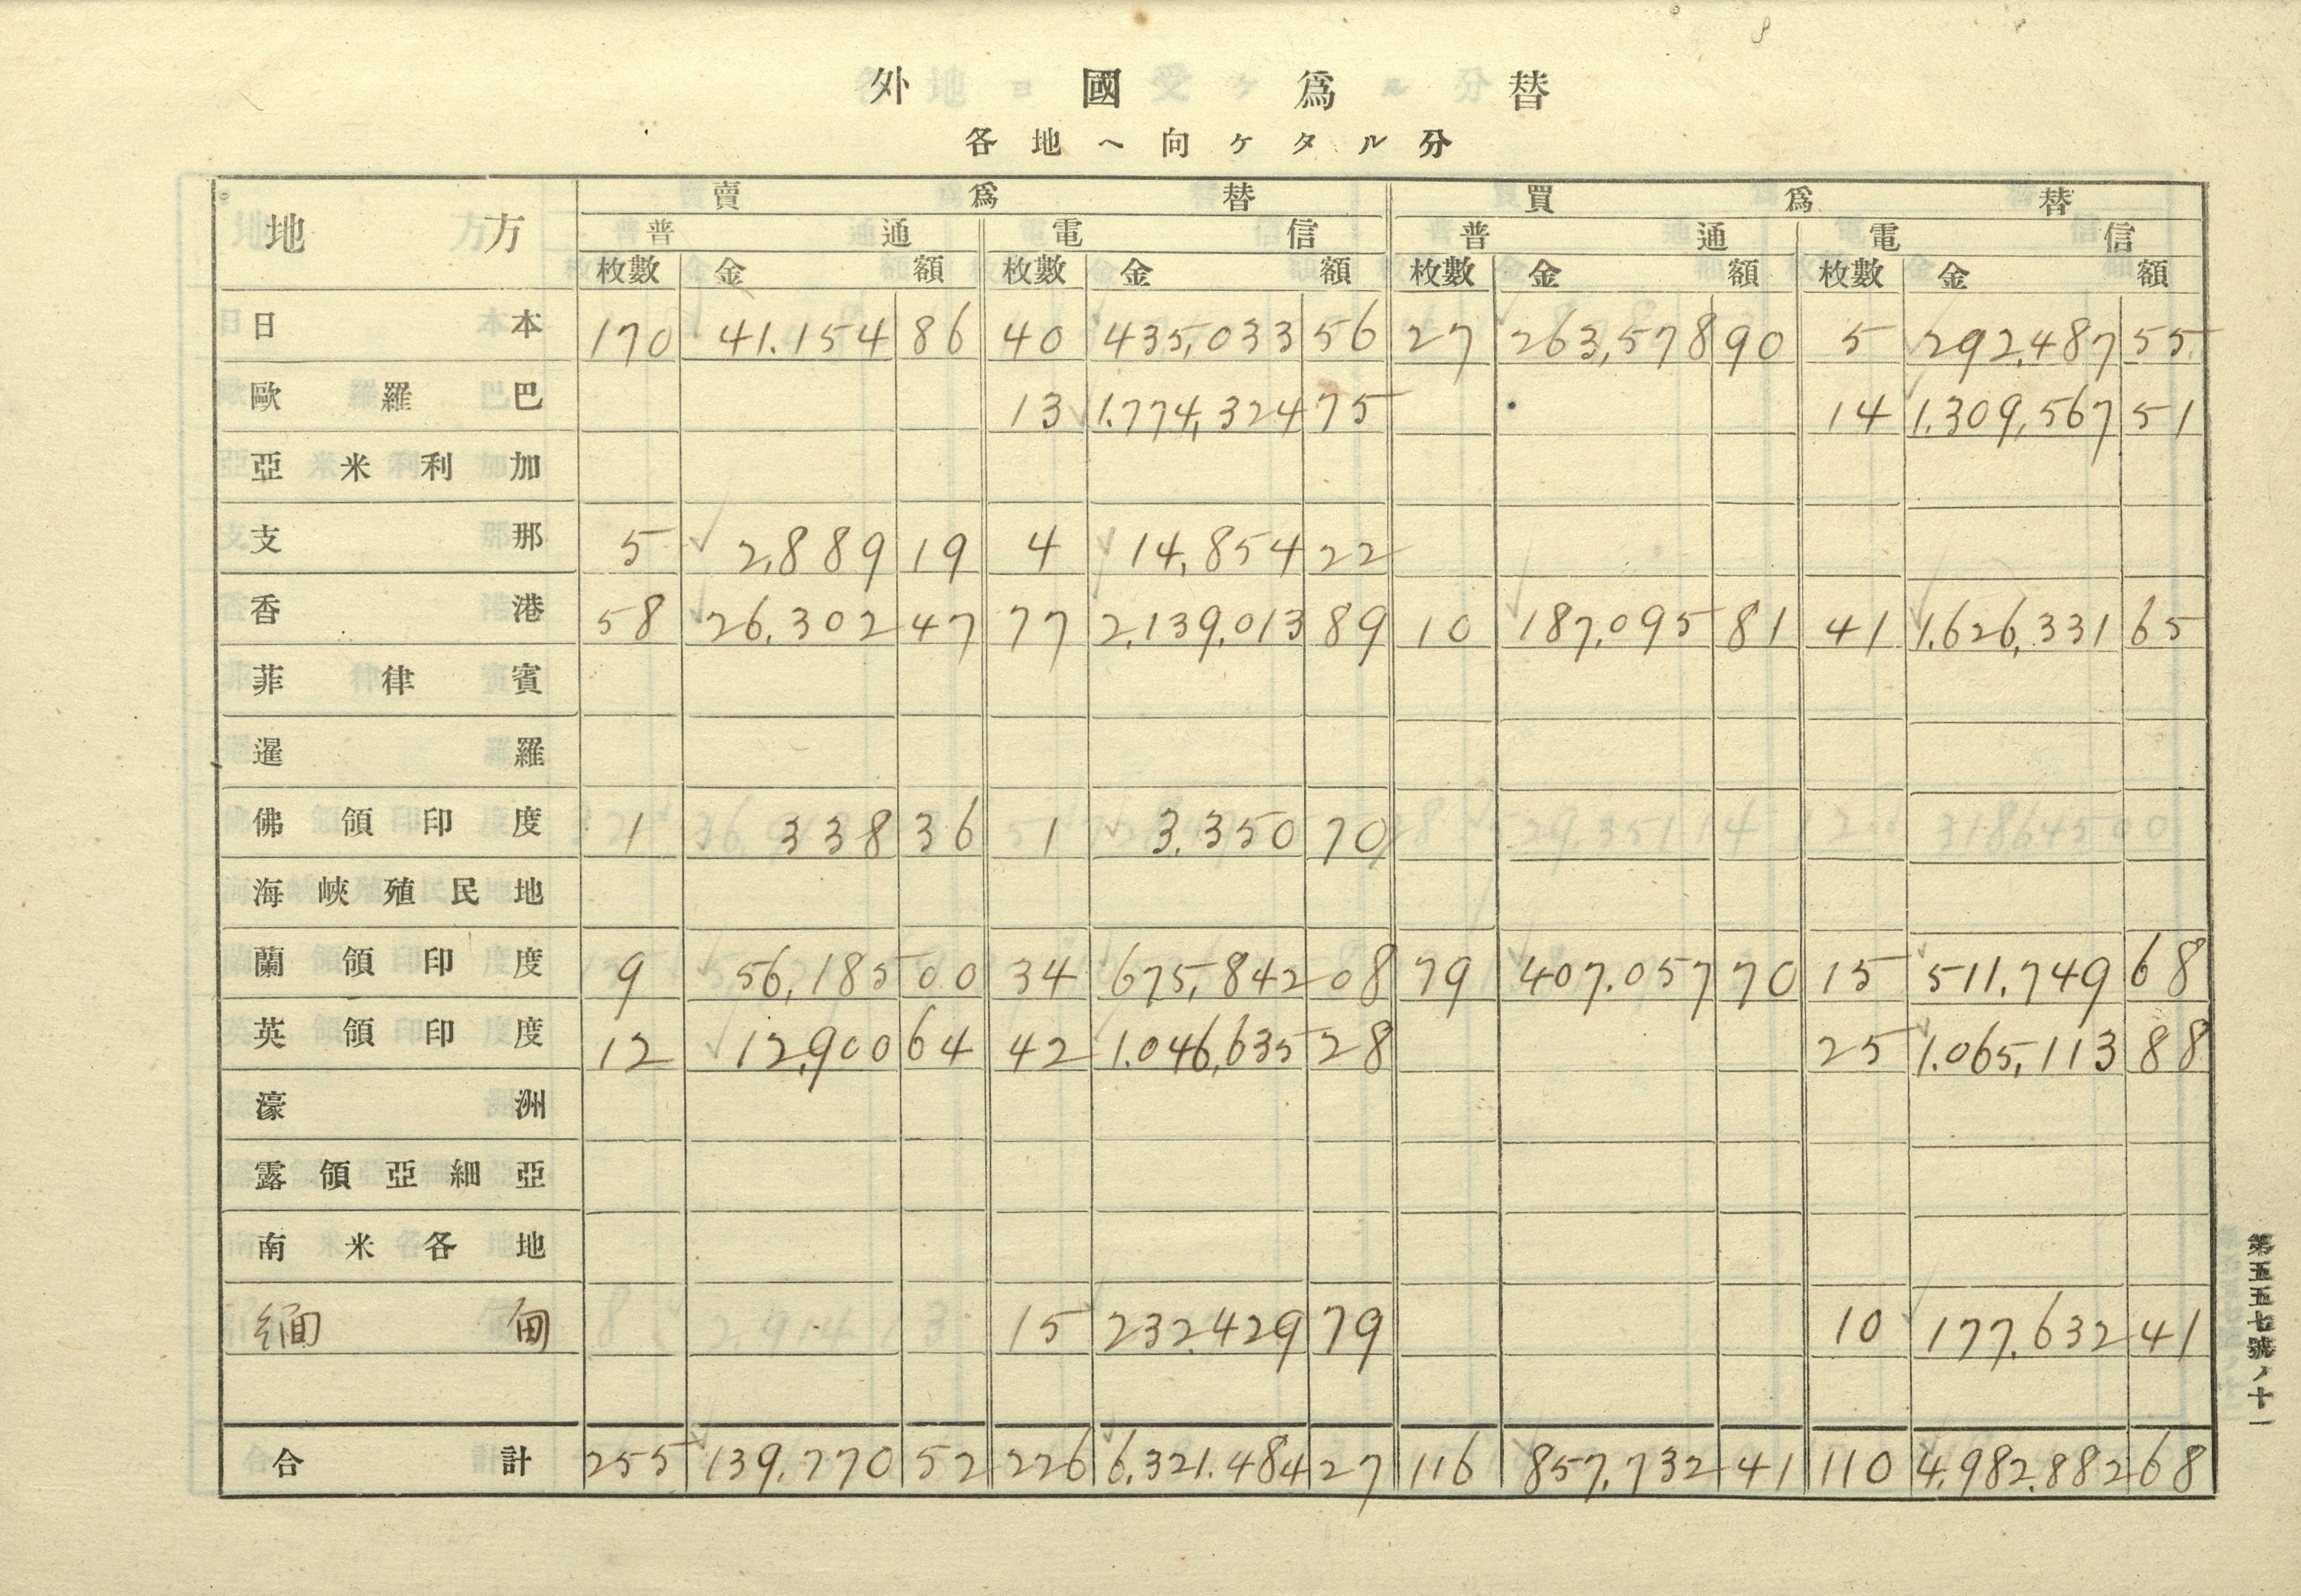 外國爲替
各地ヘ向ケタル分
地方 賣爲替 買爲替
普通 電信 普通 電信
枚數 金額 枚數 金額 枚數 金額 枚數 金額
日本 170 41.154 86 40 435,033 56 27 263,578 90 5 292,487 55
歐羅巴 13 1.774,324 75 14 1.309,567 51
亞米利加
支那 5 2,889 19 4 14,854 22
香港 58 26,302 47 77 2,139,013 89 10 187,095 81 41 1.626,331 65
菲律賓
暹羅
佛領印度 1 338 36 1 3.350 70
海峽殖民地
蘭領印度 9 56,185 00 34 675,842 08 79 407.057 70 15 511,749 68
英領印度 12 12,900 64 42 1.046,635 28 25 1.065,113 88
濠洲
露領亞細亞
南米各地
緬甸 15 232,429 79 10 177,632 41
合計 255 139,770 52 226 6,321.484 27 116 857,732 41 110 4,982.882 68
第五五七號ノ十一